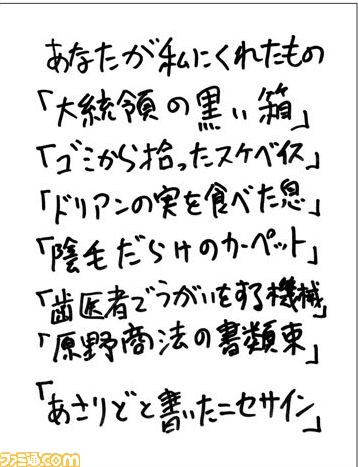 あなたが私にくれたもの
「大統領の黒い箱」
「ゴミから拾ったスケベイス」
「ドリアンの実を食べた息」
「陰毛だらけのカーペット」
「歯医者でうがいをする機械」
「原野商法の書類束」
「あさりどと書いたニセサイン」
ファミ通.com